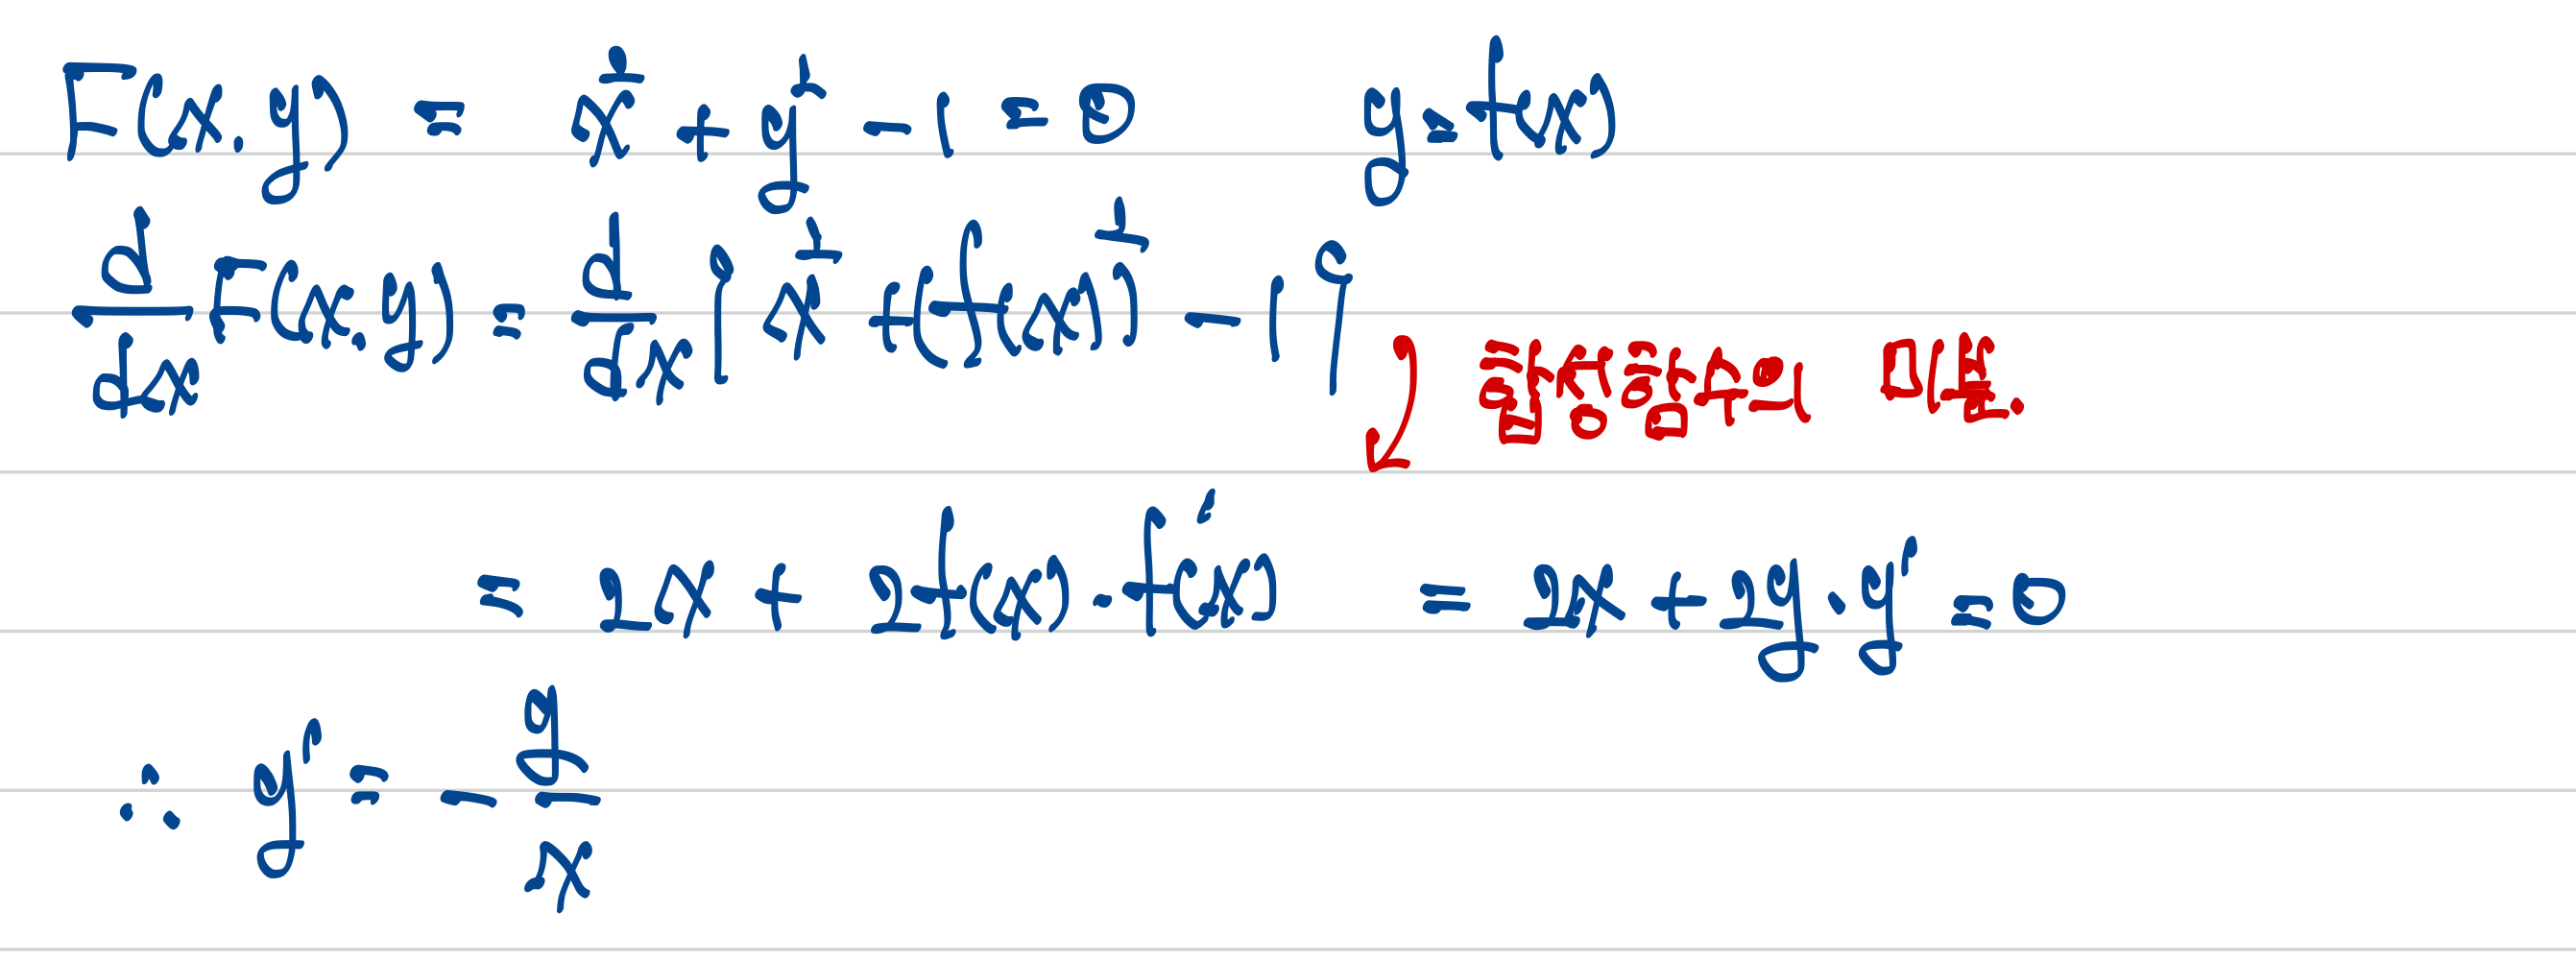 F(x.y) = x² + y² - 1 = 0 y = f(x)
d/dx F(x.y) = d/dx { x² + (f(x))² - 1 } 합성함수의 미분.
= 2x + 2f(x) · f'(x) = 2x + 2y · y' = 0
∴ y' = - y/x